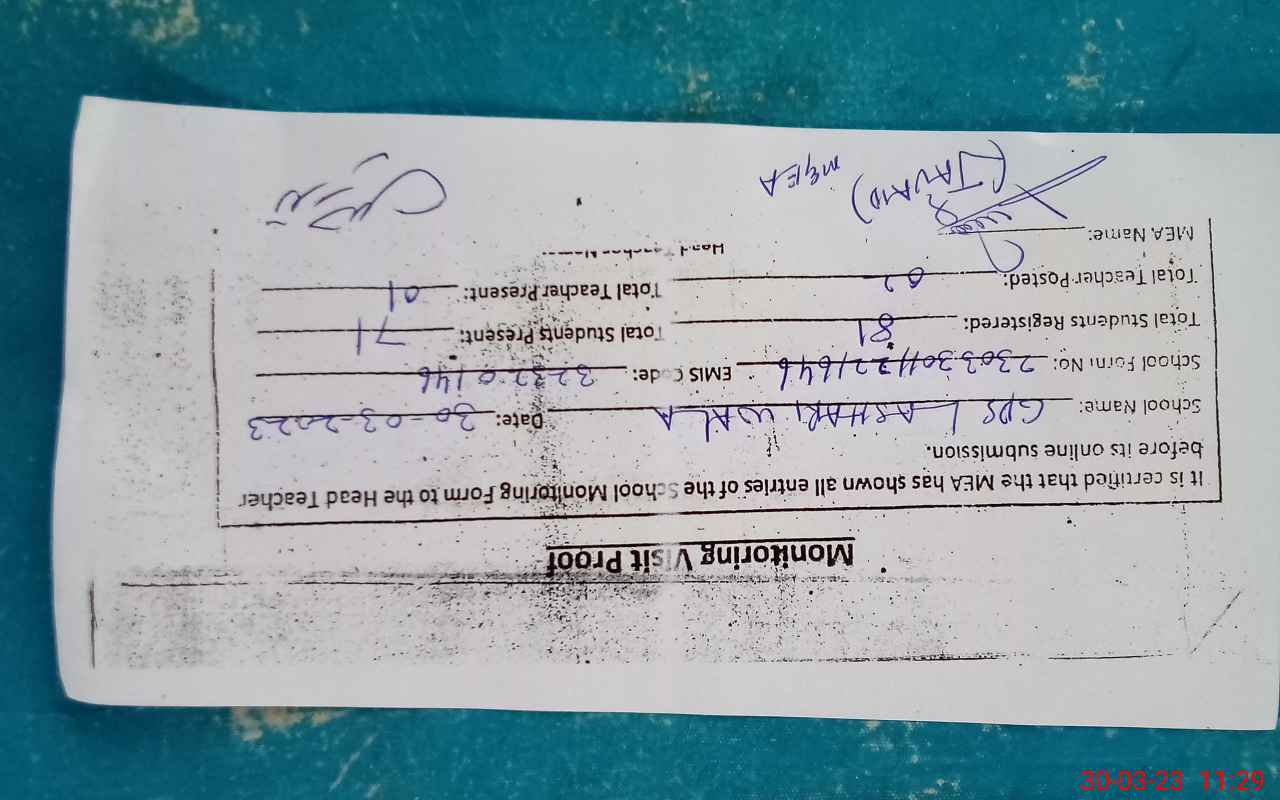 Monitoring Visit Proof
It is certified that the MEA has shown all entries of the School Monitoring Form to the Head Teacher
before its online submission.
School Name: GPS LASHARI WALA Date: 30-03-2023
School Form No: EMIS Code: 32320146
Total Students Registered: 81 Total Students Present: 71
Total Teacher Posted: 02 Total Teacher Present: 01
MEA Name: Head Teacher Name:
(JAVAID) MEA
30-03-23 11:29